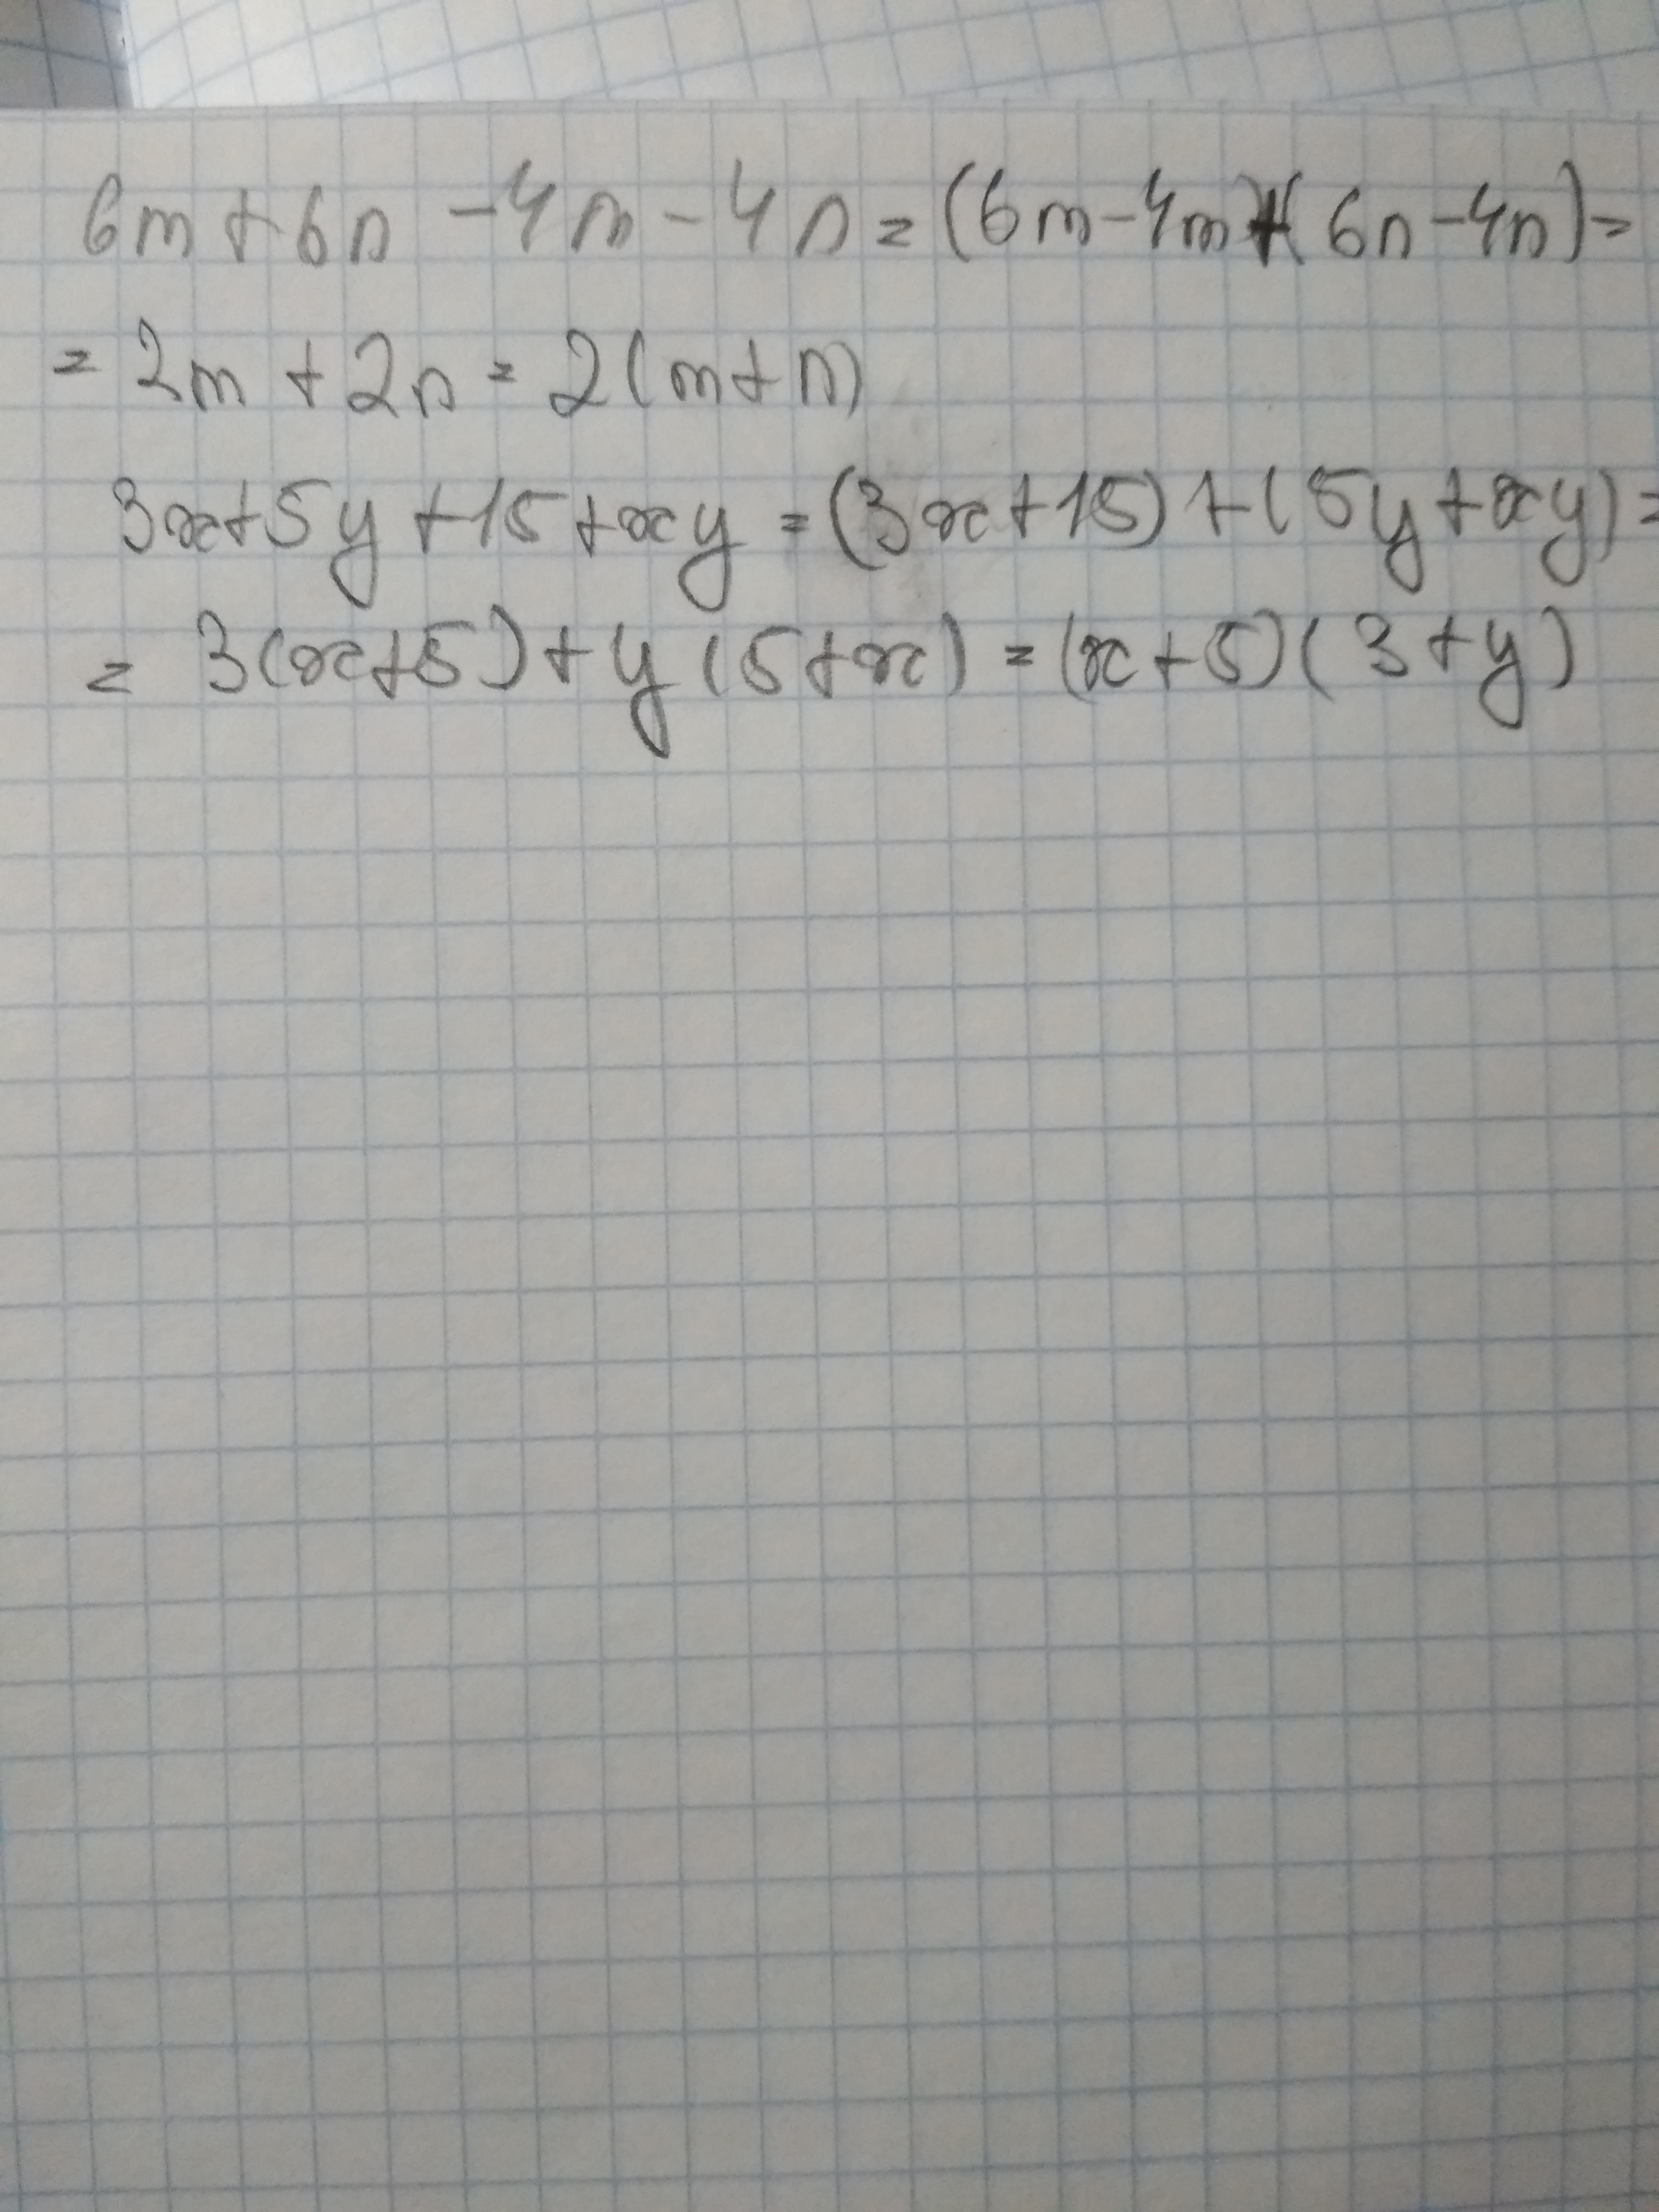 6m+6n-4m-4n=(6m-4m)+(6n-4n)=
=2m+2n=2(m+n)
3x+5y+15+xy=(3x+15)+(5y+xy)=
=3(x+5)+y(5+x)=(x+5)(3+y)